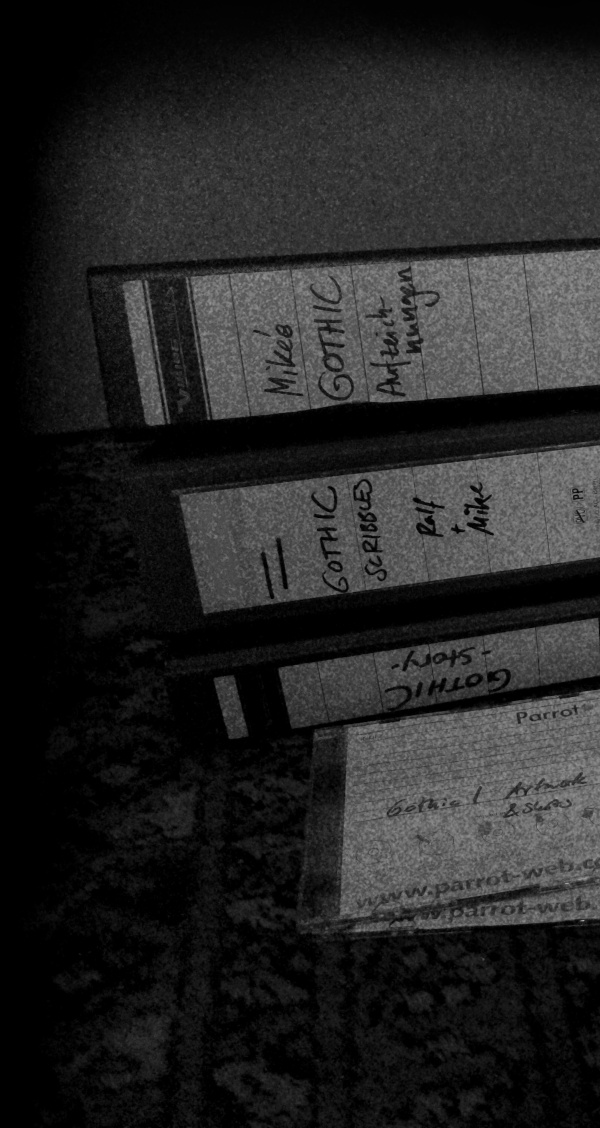 Mike's
GOTHIC
Aufzeich-
nungen
GOTHIC
SCRIBBLES
Ralf
+
Mike
GOTHIC
- Story -
Parrot
Gothic 1 Artwork
& Shots
www.parrot-web.co
www.parrot-web.